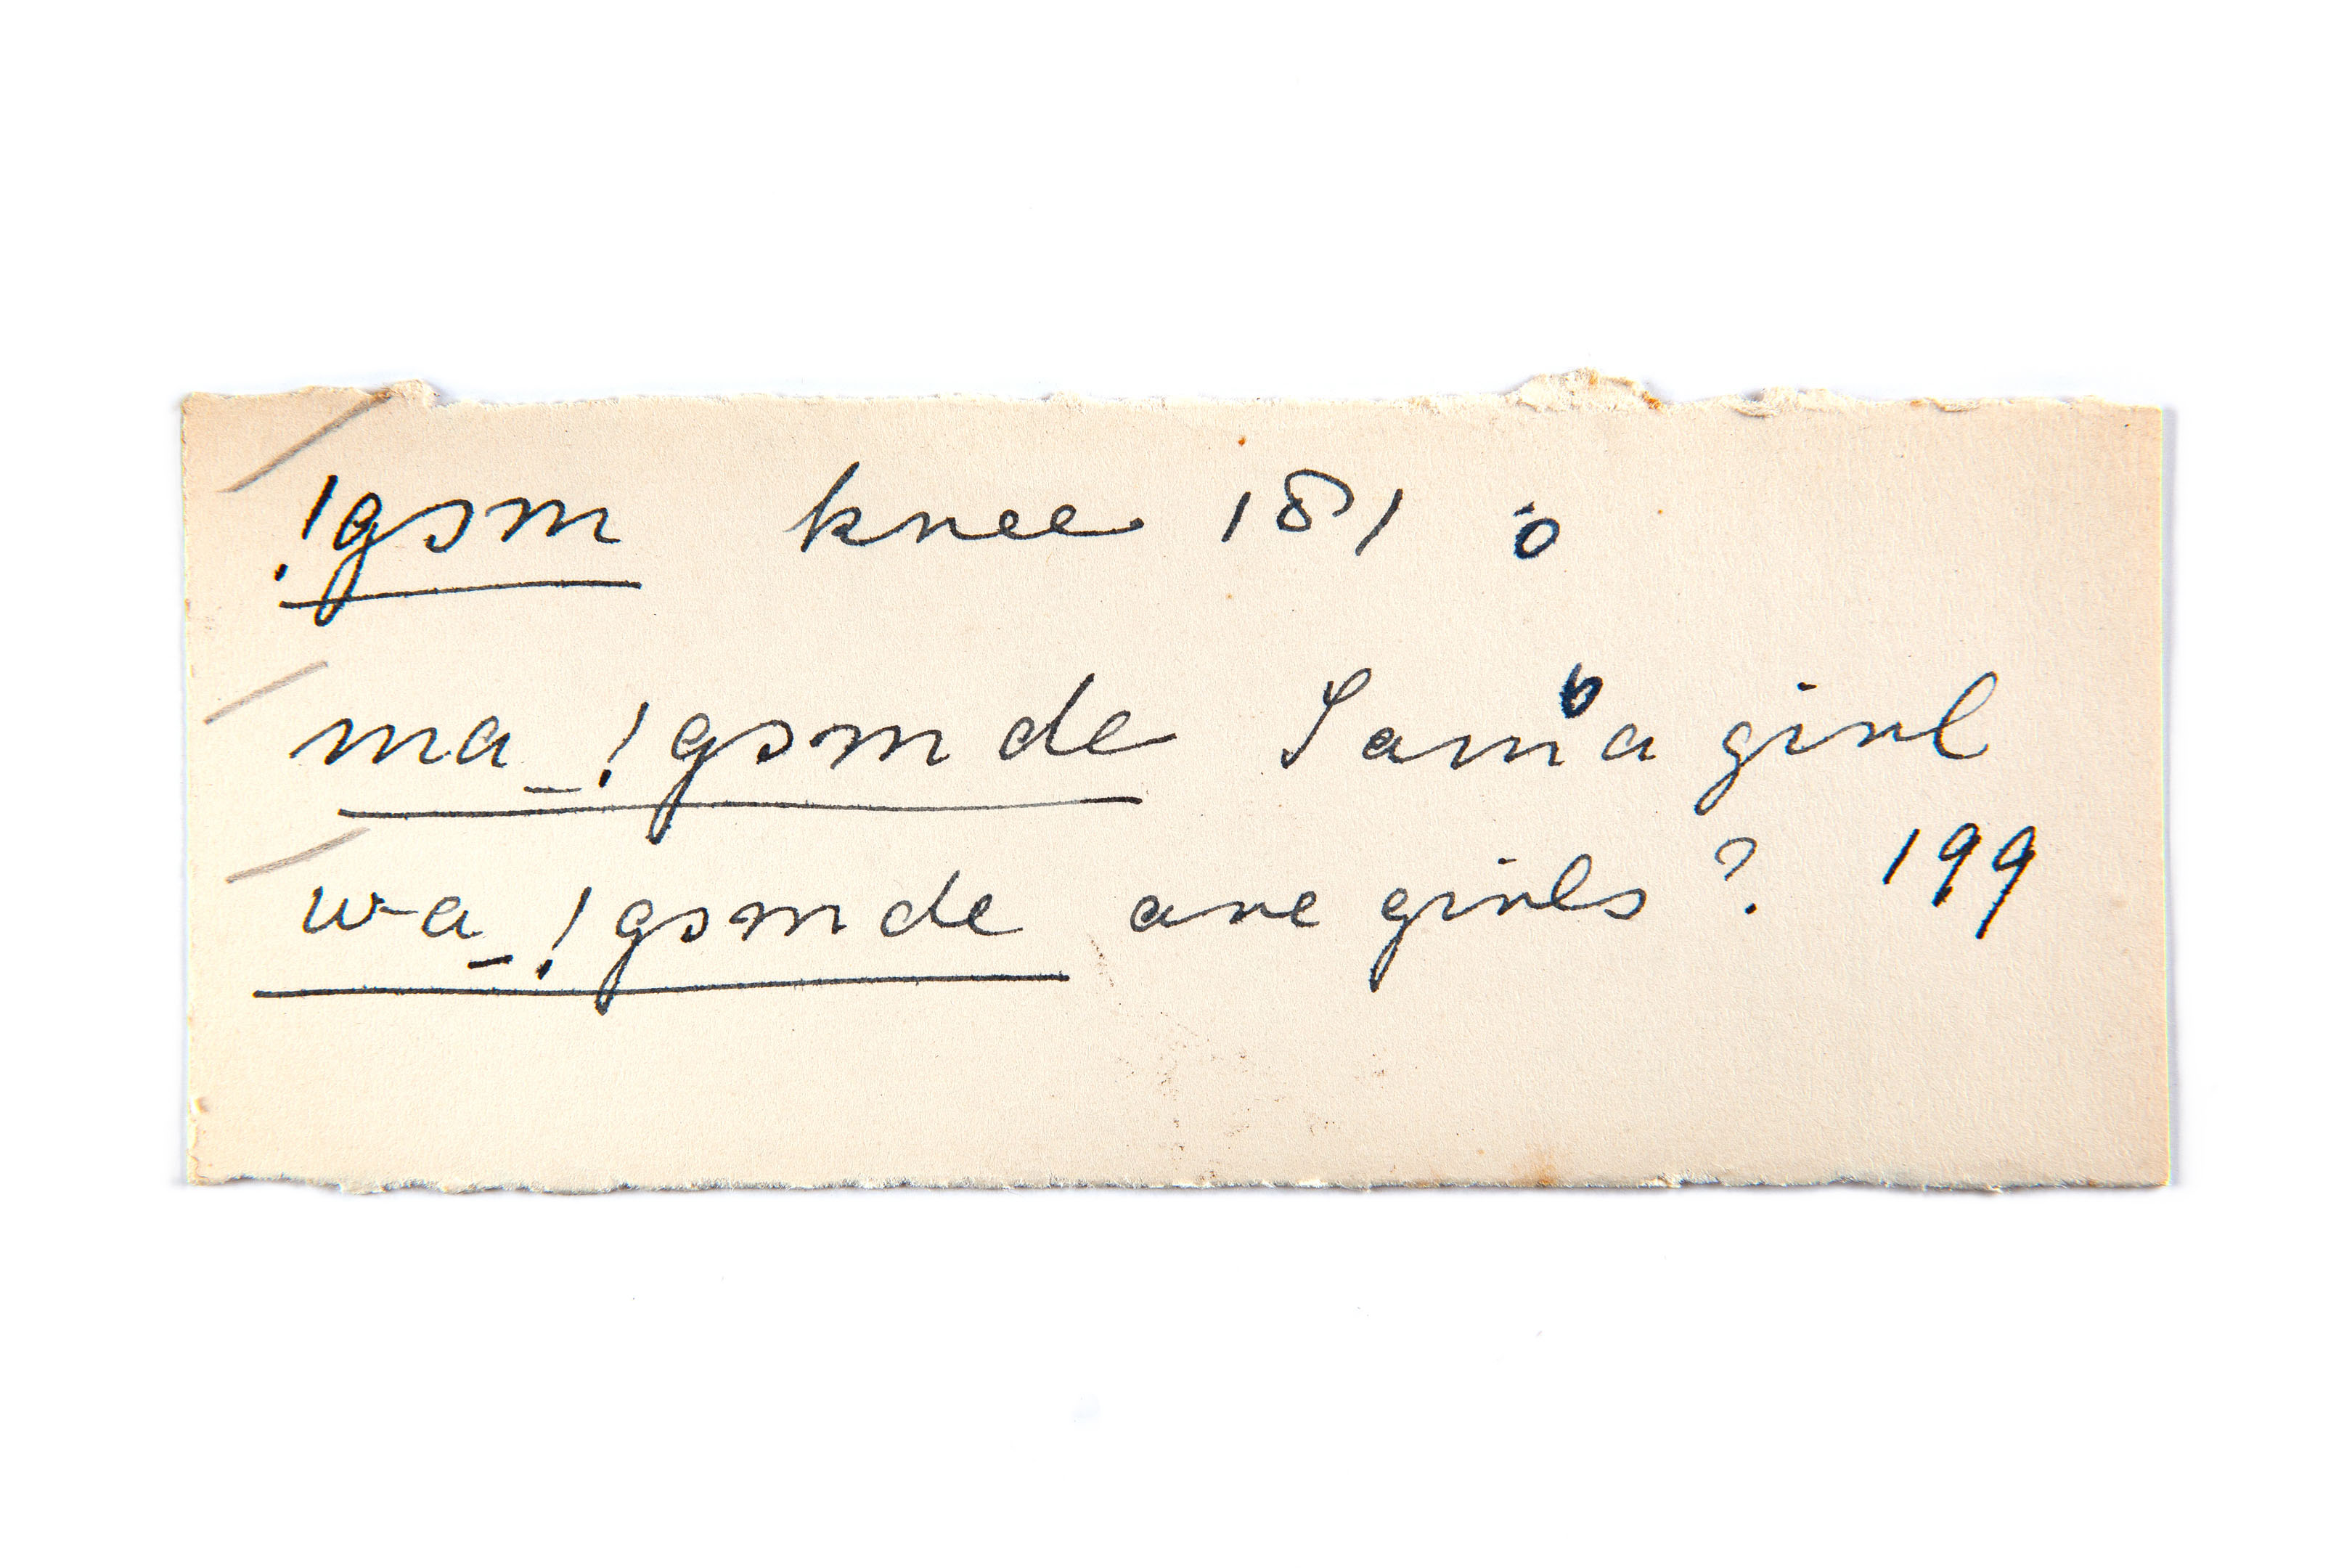 !gɔm knee 181 o
ma_!gɔmde I am a girl
wa_!gɔmde are girls ? 199